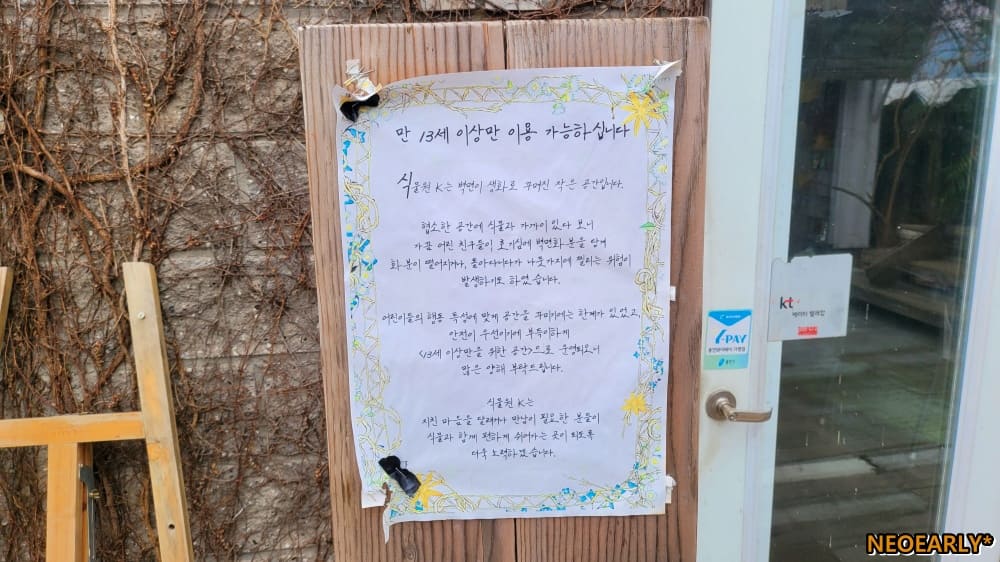 만 13세 이상만 이용 가능하십니다
식물원 K는 벽면이 생화로 꾸며진 작은 공간입니다.
협소한 공간에 식물과 가까이 있다 보니
가끔 어린 친구들이 호기심에 벽면화분을 당겨
화분이 떨어지거나, 돌아다니다가 나뭇가지에 찔리는 위험이
발생하기도 하였습니다.
어린이들의 행동 특성에 맞게 공간을 꾸미기에는 한계가 있었고,
안전이 우선이기에 부득이하게
<13세 이상만을 위한 공간>으로 운영되오니
많은 양해 부탁드립니다.
식물원 K는
지친 마음을 달래거나 만남이 필요한 분들이
식물과 함께 편하게 쉬어가는 곳이 되도록
더욱 노력하겠습니다.
kt
Y-PAY
NEOEARLY*